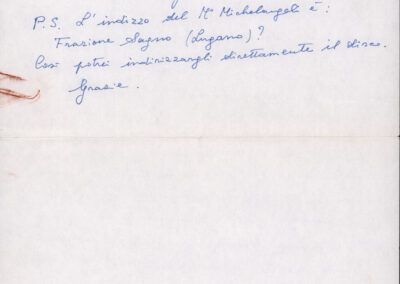 P.S. L'indizzo del M° Michelangeli è:
Frazione Sagno (Lugano)?
Così potrei indirizzargli direttamente il disco.
Grazie.